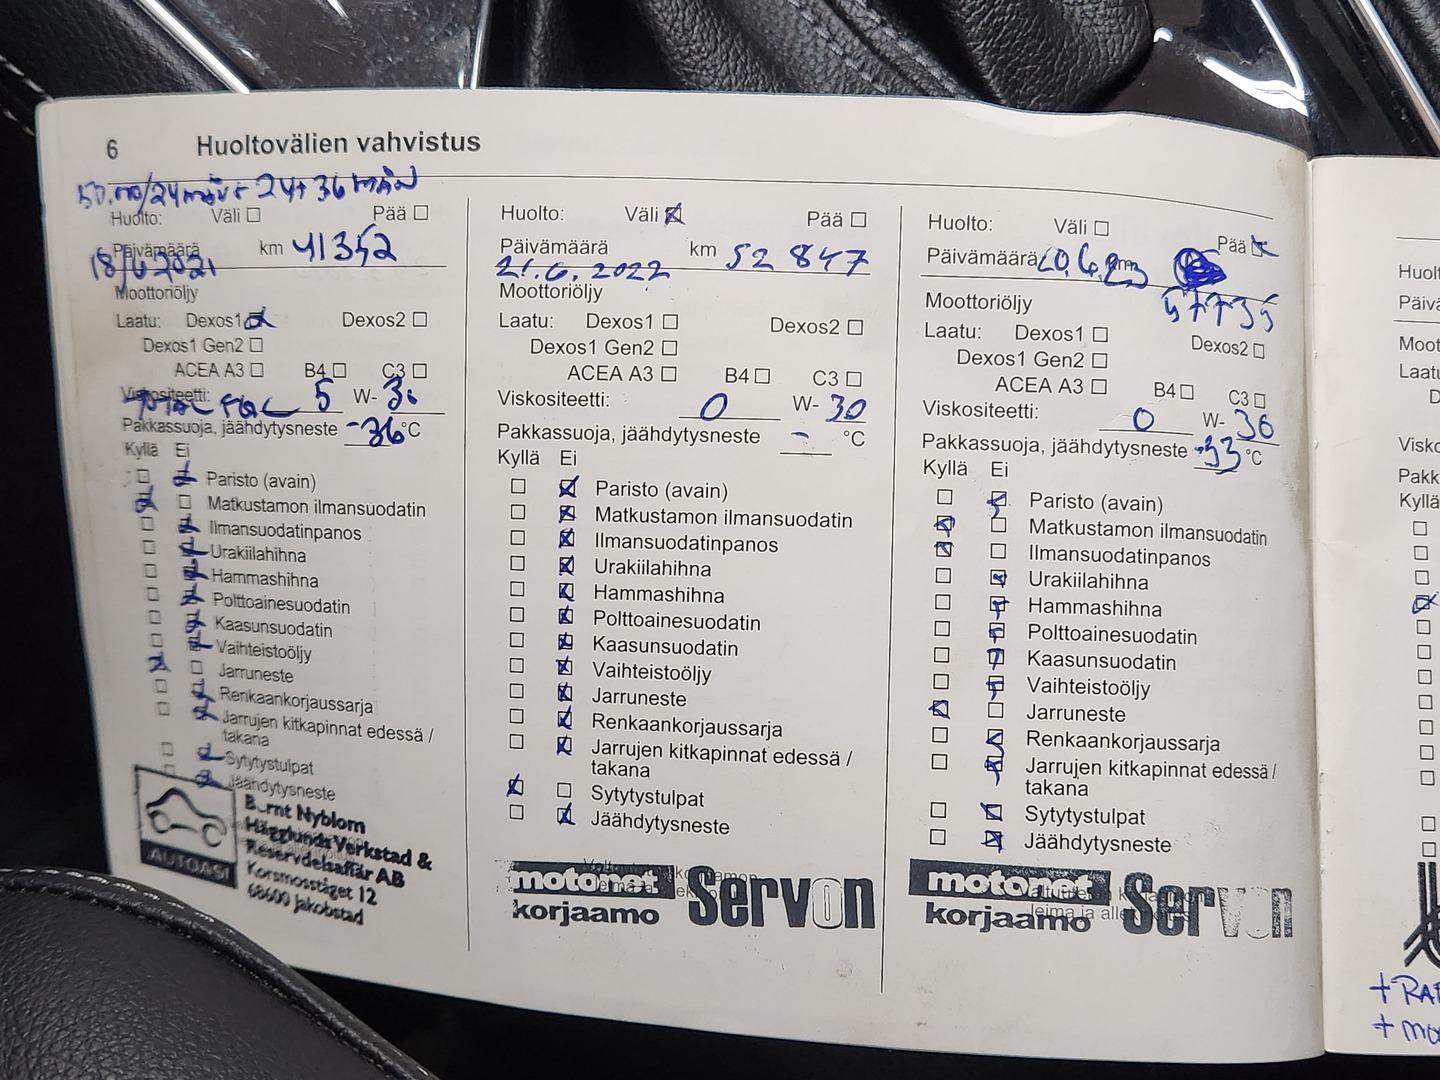 6 Huoltovälien vahvistus
Huolto: Väli Pää
Päivämäärä km 41352
18/6 2021
Moottoriöljy
Laatu: Dexos1 Dexos2
Dexos1 Gen2
ACEA A3 B4 C3
Viskositeetti: 5 W- 30
Pakkassuoja, jäähdytysneste -36 °C
Kyllä Ei
Paristo (avain)
Matkustamon ilmansuodatin
Ilmansuodatinpanos
Urakiilahihna
Hammashihna
Polttoainesuodatin
Kaasunsuodatin
Vaihteistoöljy
Jarruneste
Renkaankorjaussarja
Jarrujen kitkapinnat edessä /
takana
Sytytystulpat
Jäähdytysneste
AUTOASI
Nyblom
Hägglunds Verkstad &
Reservdelsaffär AB
Korsmosståget 12
68600 Jakobstad
Huolto: Väli Pää
Päivämäärä km 52 847
21.6.2022
Moottoriöljy
Laatu: Dexos1 Dexos2
Dexos1 Gen2
ACEA A3 B4 C3
Viskositeetti: 0 W- 30
Pakkassuoja, jäähdytysneste - °C
Kyllä Ei
Paristo (avain)
Matkustamon ilmansuodatin
Ilmansuodatinpanos
Urakiilahihna
Hammashihna
Polttoainesuodatin
Kaasunsuodatin
Vaihteistoöljy
Jarruneste
Renkaankorjaussarja
Jarrujen kitkapinnat edessä /
takana
Sytytystulpat
Jäähdytysneste
motonet
korjaamo Servon
Huolto: Väli Pää
Päivämäärä 20.6.23
57735
Moottoriöljy
Laatu: Dexos1 Dexos2
Dexos1 Gen2
ACEA A3 B4 C3
Viskositeetti: 0 W- 30
Pakkassuoja, jäähdytysneste -33 °C
Kyllä Ei
Paristo (avain)
Matkustamon ilmansuodatin
Ilmansuodatinpanos
Urakiilahihna
Hammashihna
Polttoainesuodatin
Kaasunsuodatin
Vaihteistoöljy
Jarruneste
Renkaankorjaussarja
Jarrujen kitkapinnat edessä /
takana
Sytytystulpat
Jäähdytysneste
motonet
korjaamo Servon
Huolt
Päivä
Moot
Laatu
D
Visko
Pakk
Kyllä